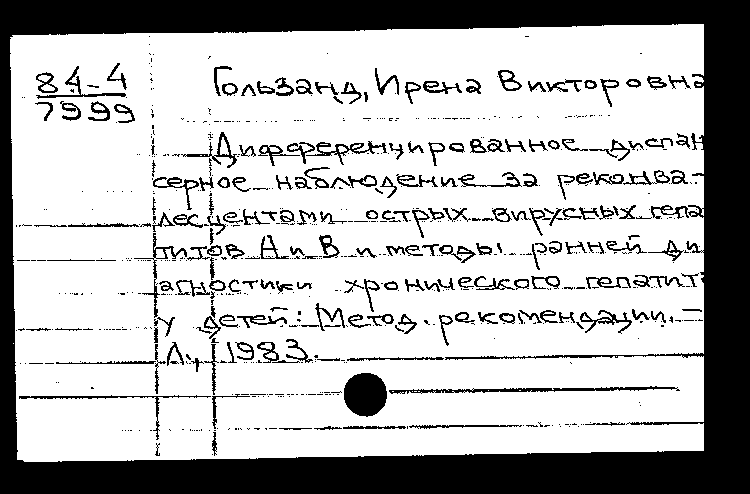 84-4
7999
Гользанд, Ирена Викторовна
Дифференцированное диспан
серное наблюдение за реконва-
лесцентами острых вирусных гепа
титов А и В и методы ранней ди
агностики хронического гепатит
у детей: Метод. рекомендации. –
Л., 1983.